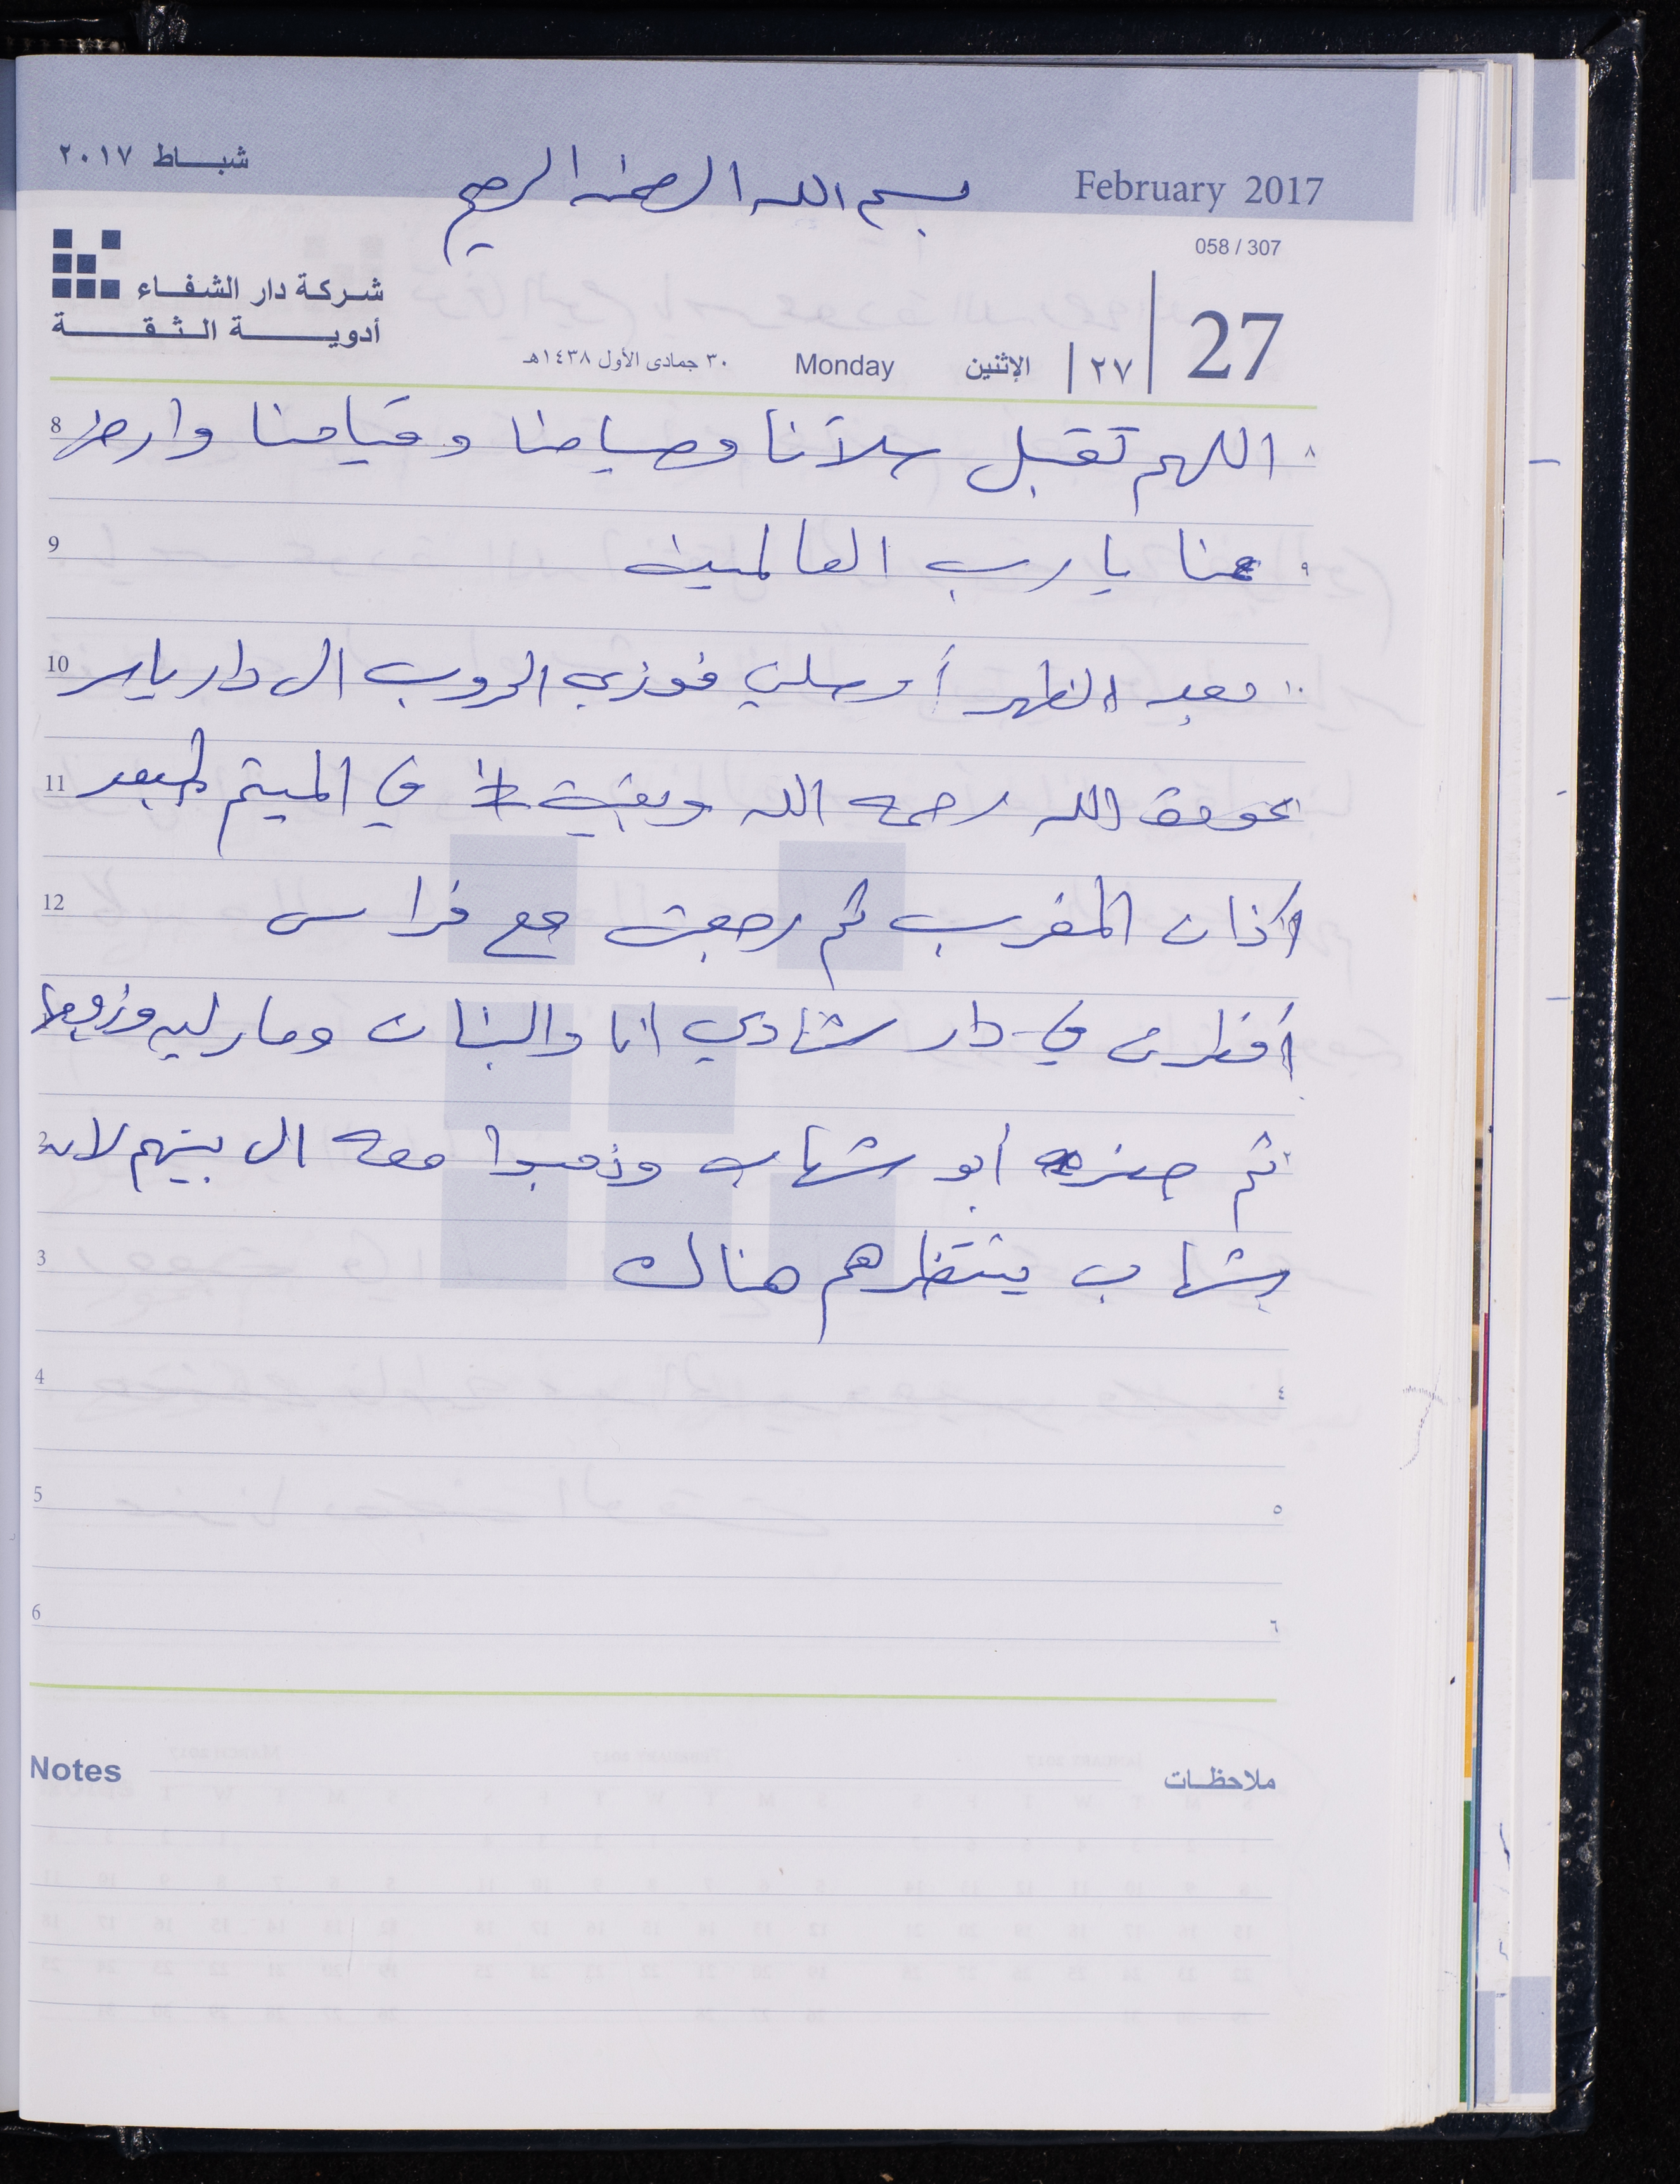 شباط ٢٠١٧
بسم الله الرحمن الرحيم
February 2017
058 / 307
شركة دار الشفاء
أدوية الثقة
27
٢٧ الإثنين Monday ٣٠ جمادى الأول ١٤٣٨هـ
8 اللهم تقبل صلاتنا وصيامنا وقيامنا وارض ٨
9 عنا يا رب العالمين ٩
10 وبعد الظهر أوصلني فوزي الدروب الى دار ياسر ١٠
11 عوض الله رحمه الله وبقيت في الميتم لبعد
12 اذان المغرب ثم رجعت مع فراس
أفطرت في دار شادي انا والبنات ومارليه وزوجها
2 ثم حضر أبو شهاب وذهبوا معه الى بيتهم لان ٢
3 شهاب ينتظرهم هناك
4 ٤
5 ٥
6 ٦
Notes ملاحظات